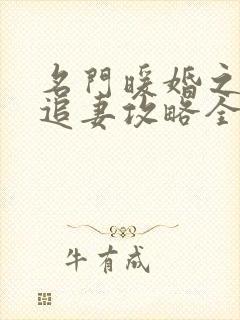 名門暖婚之
追妻攻略全
牛有成